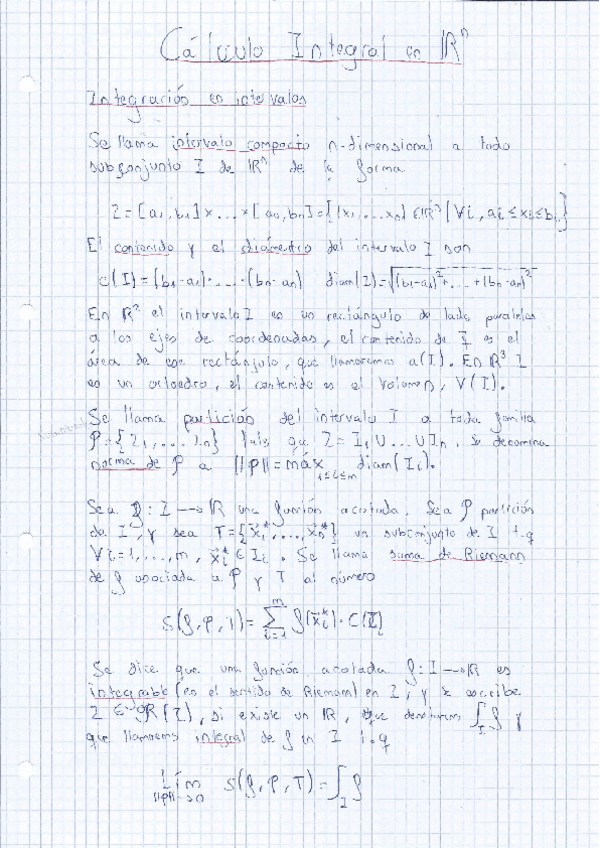 Cálculo Integral en ℝⁿ
Integración en intervalos
Se llama intervalo compacto n-dimensional a todo
subconjunto I de ℝⁿ de la forma
I = [a₁, b₁] × ... × [aₙ, bₙ] = {(x₁, ... xₙ) ∈ ℝⁿ | ∀i, aᵢ ≤ xᵢ ≤ bᵢ}
El contenido y el diámentro del intervalo I son
c(I) = (b₁-a₁)· ... ·(bₙ-aₙ) diam(I) = √((b₁-a₁)² + ... + (bₙ-aₙ)²)
En ℝ² el intervalo I es un rectángulo de lados paralelos
a los ejes de coordenadas, el contenido de I es el
área de ese rectángulo, que llamaremos a(I). En ℝ³ I
es un ortoedro, el contenido es el volumen, V(I).
Se llama partición del intervalo I a toda familia
P = {I₁, ... Iₙ} tals que I = I₁ ∪ ... ∪ Iₙ. Se denomina
norma de P a ||P|| = máx 1≤i≤m diam(Iᵢ).
Sea f: I → ℝ una función acotada. Sea P partición
de I, y sea T = {x⃗₁*, ..., x⃗ₙ*} un subconjunto de I t.q
∀i = 1, ..., m, x⃗ᵢ* ∈ Iᵢ. Se llama suma de Riemann
de f asociada a P y T al número
S(f, P, T) = ∑ᵢ₌₁ᵐ f(x⃗ᵢ*)·c(I)
Se dice que una función acotada f: I → ℝ es
integrable (en el sentido de Riemann) en I, y se escribe
I ∈ R(I), si existe un ℝ, que denotarems ∫_I f y
que llamarems integral de f en I t.q
Lím ||P||→0 S(f, P, T) = ∫_I f